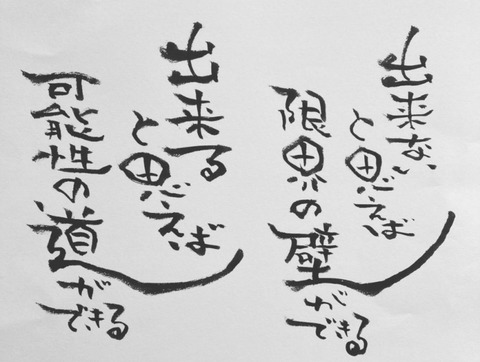 出来ない
と思えば
限界の壁
ができる
出来る
と思えば
可能性の道
ができる